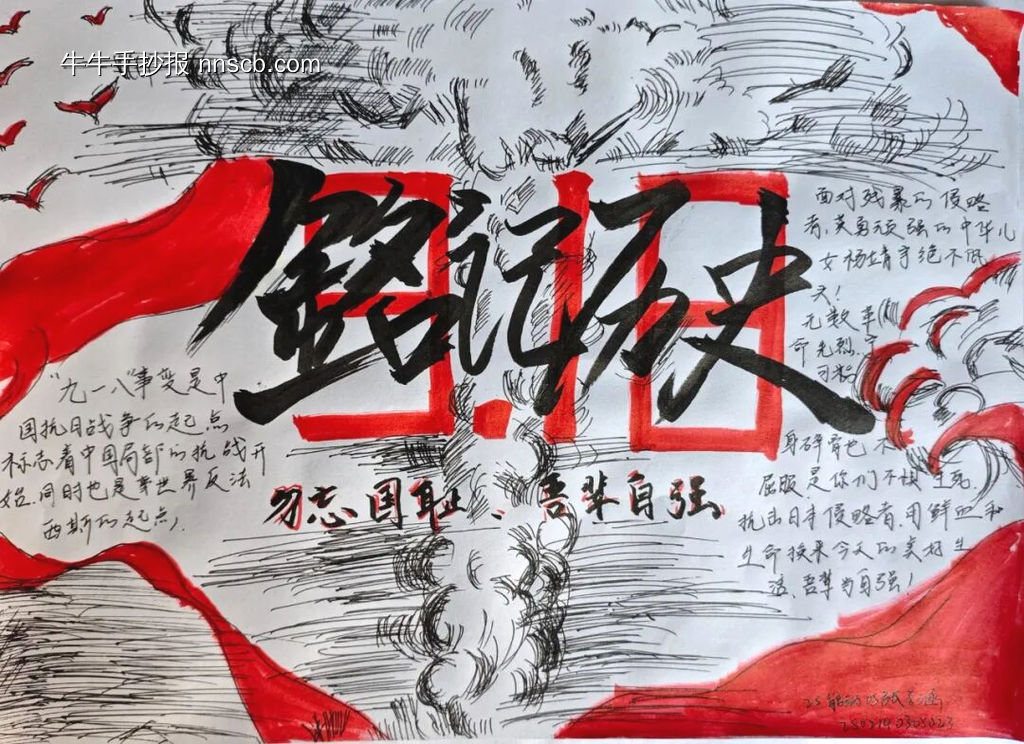 牛牛手抄报 nnscb.com
9.18
銘记历史
勿忘国耻、吾辈自强
“九一八”事变是中
国抗日战争的起点
标志着中国局部的抗战开
始,同时也是世界反法
西斯的起点,
面对残暴的侵略
者,英勇顽强的中华儿
女杨靖宇绝不低
头!
无数革
命先烈
身碎骨也不
屈服,是你们不惧生死,
抗击日本侵略者,用鲜血和
生命换来今天的美好生
活,吾辈当自强!